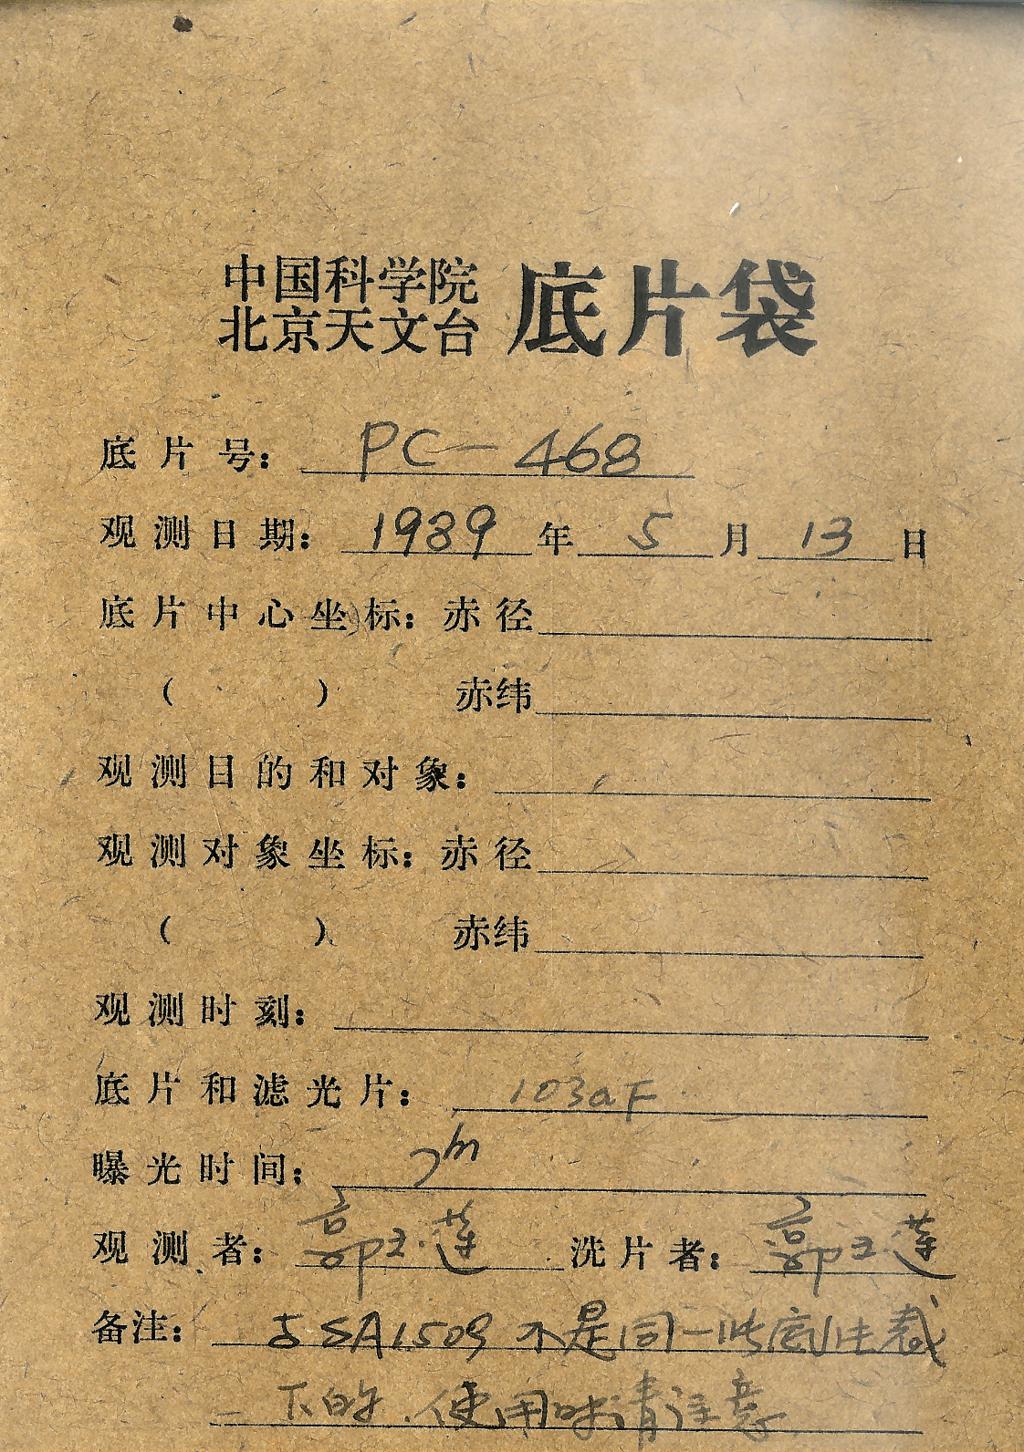 中国科学院
北京天文台 底片袋
底片号: PC-468
观测日期: 1989 年 5 月 13 日
底片中心坐标: 赤径
( ) 赤纬
观测目的和对象:
观测对象坐标: 赤径
( ) 赤纬
观测时刻:
底片和滤光片: 103aF
曝光时间: 7m
观测者: 郭玉莲 洗片者: 郭玉莲
备注: SSA1509 不是同一张底片裁
下的, 使用时请注意